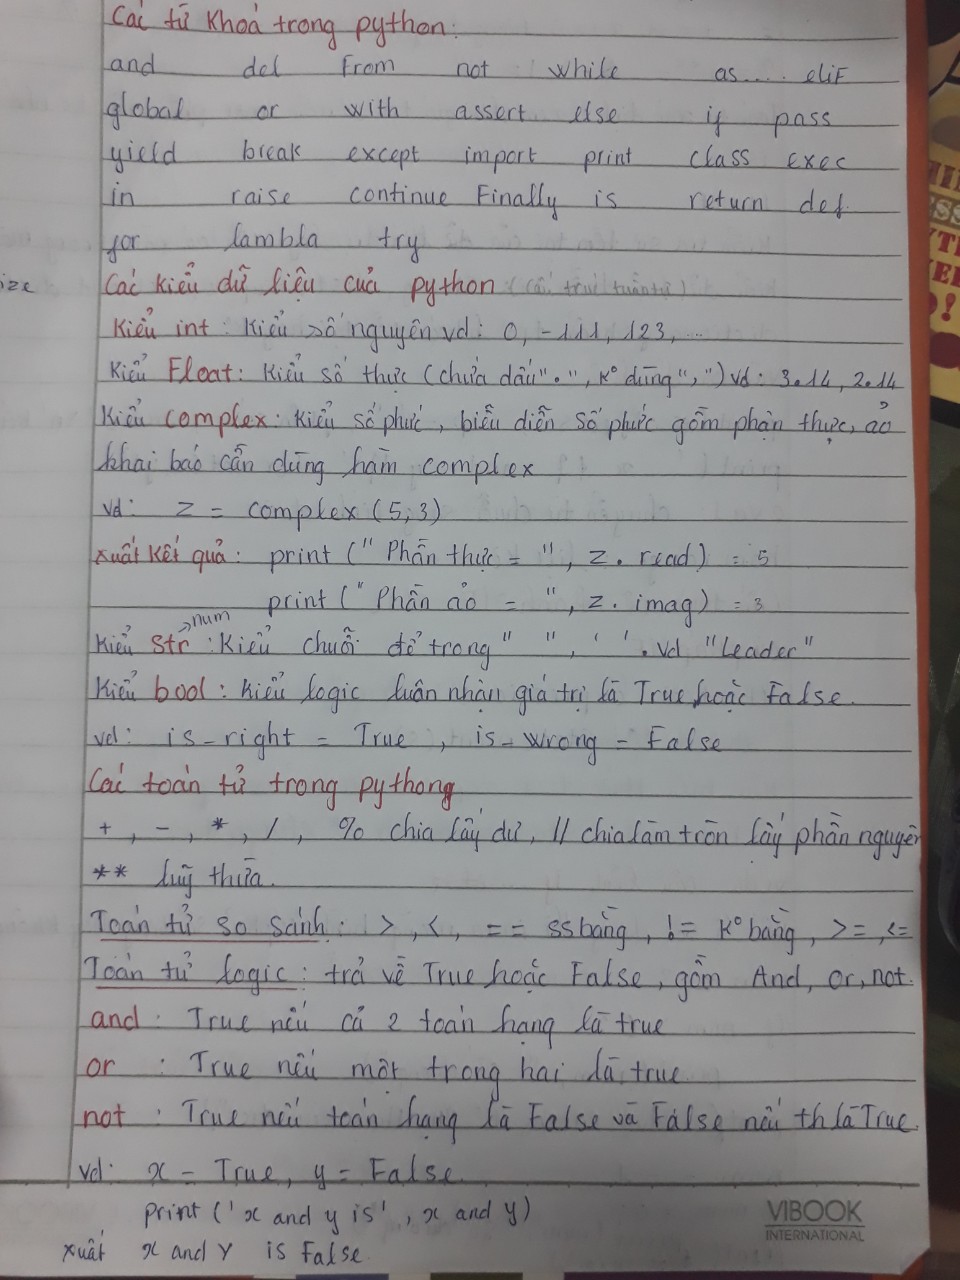 Các từ khoá trong python:
and del From not while as.... eliF
global or with assert else if pass
yield break except import print class exec
in raise continue Finally is return def
for lambla try
ize Các kiểu dữ liệu của python
Kiểu int: Kiểu số nguyên vd: 0, -111, 123,...
Kiểu Float: Kiểu số thực (chứa dấu".", K° dùng ",") vd: 3.14, 2.14
Kiểu complex: Kiểu số phức, biểu diễn số phức gồm phần thực, ảo
khai báo cần dùng hàm complex
vd: z = complex (5;3)
xuất kết quả: print ("Phần thực = ", z. read) = 5
print ("Phần ảo = ", z. imag) = 3
num
Kiểu str: Kiểu chuỗi để trong " ", ' '. vd "Leader"
Kiểu bool: Kiểu logic luân nhận giá trị là True hoặc False.
vd: is-right = True, is-wrong = False
Các toán tử trong pythong
+, -, *, /, % chia lấy dư, // chia làm tròn lấy phần nguyên
** luỹ thừa.
Toán tử so sánh: >, <, == ss bằng, != K° bằng, >=, <=
Toán tử logic: trả về True hoặc False, gồm And, or, not.
and: True nếu cả 2 toán hạng là true
or: True nếu một trong hai là true
not: True nếu toán hạng là False và False nếu th là True.
vd: x = True, y = False.
print ('x and y is', x and y)
xuất x and Y is False.
VIBOOK
INTERNATIONAL